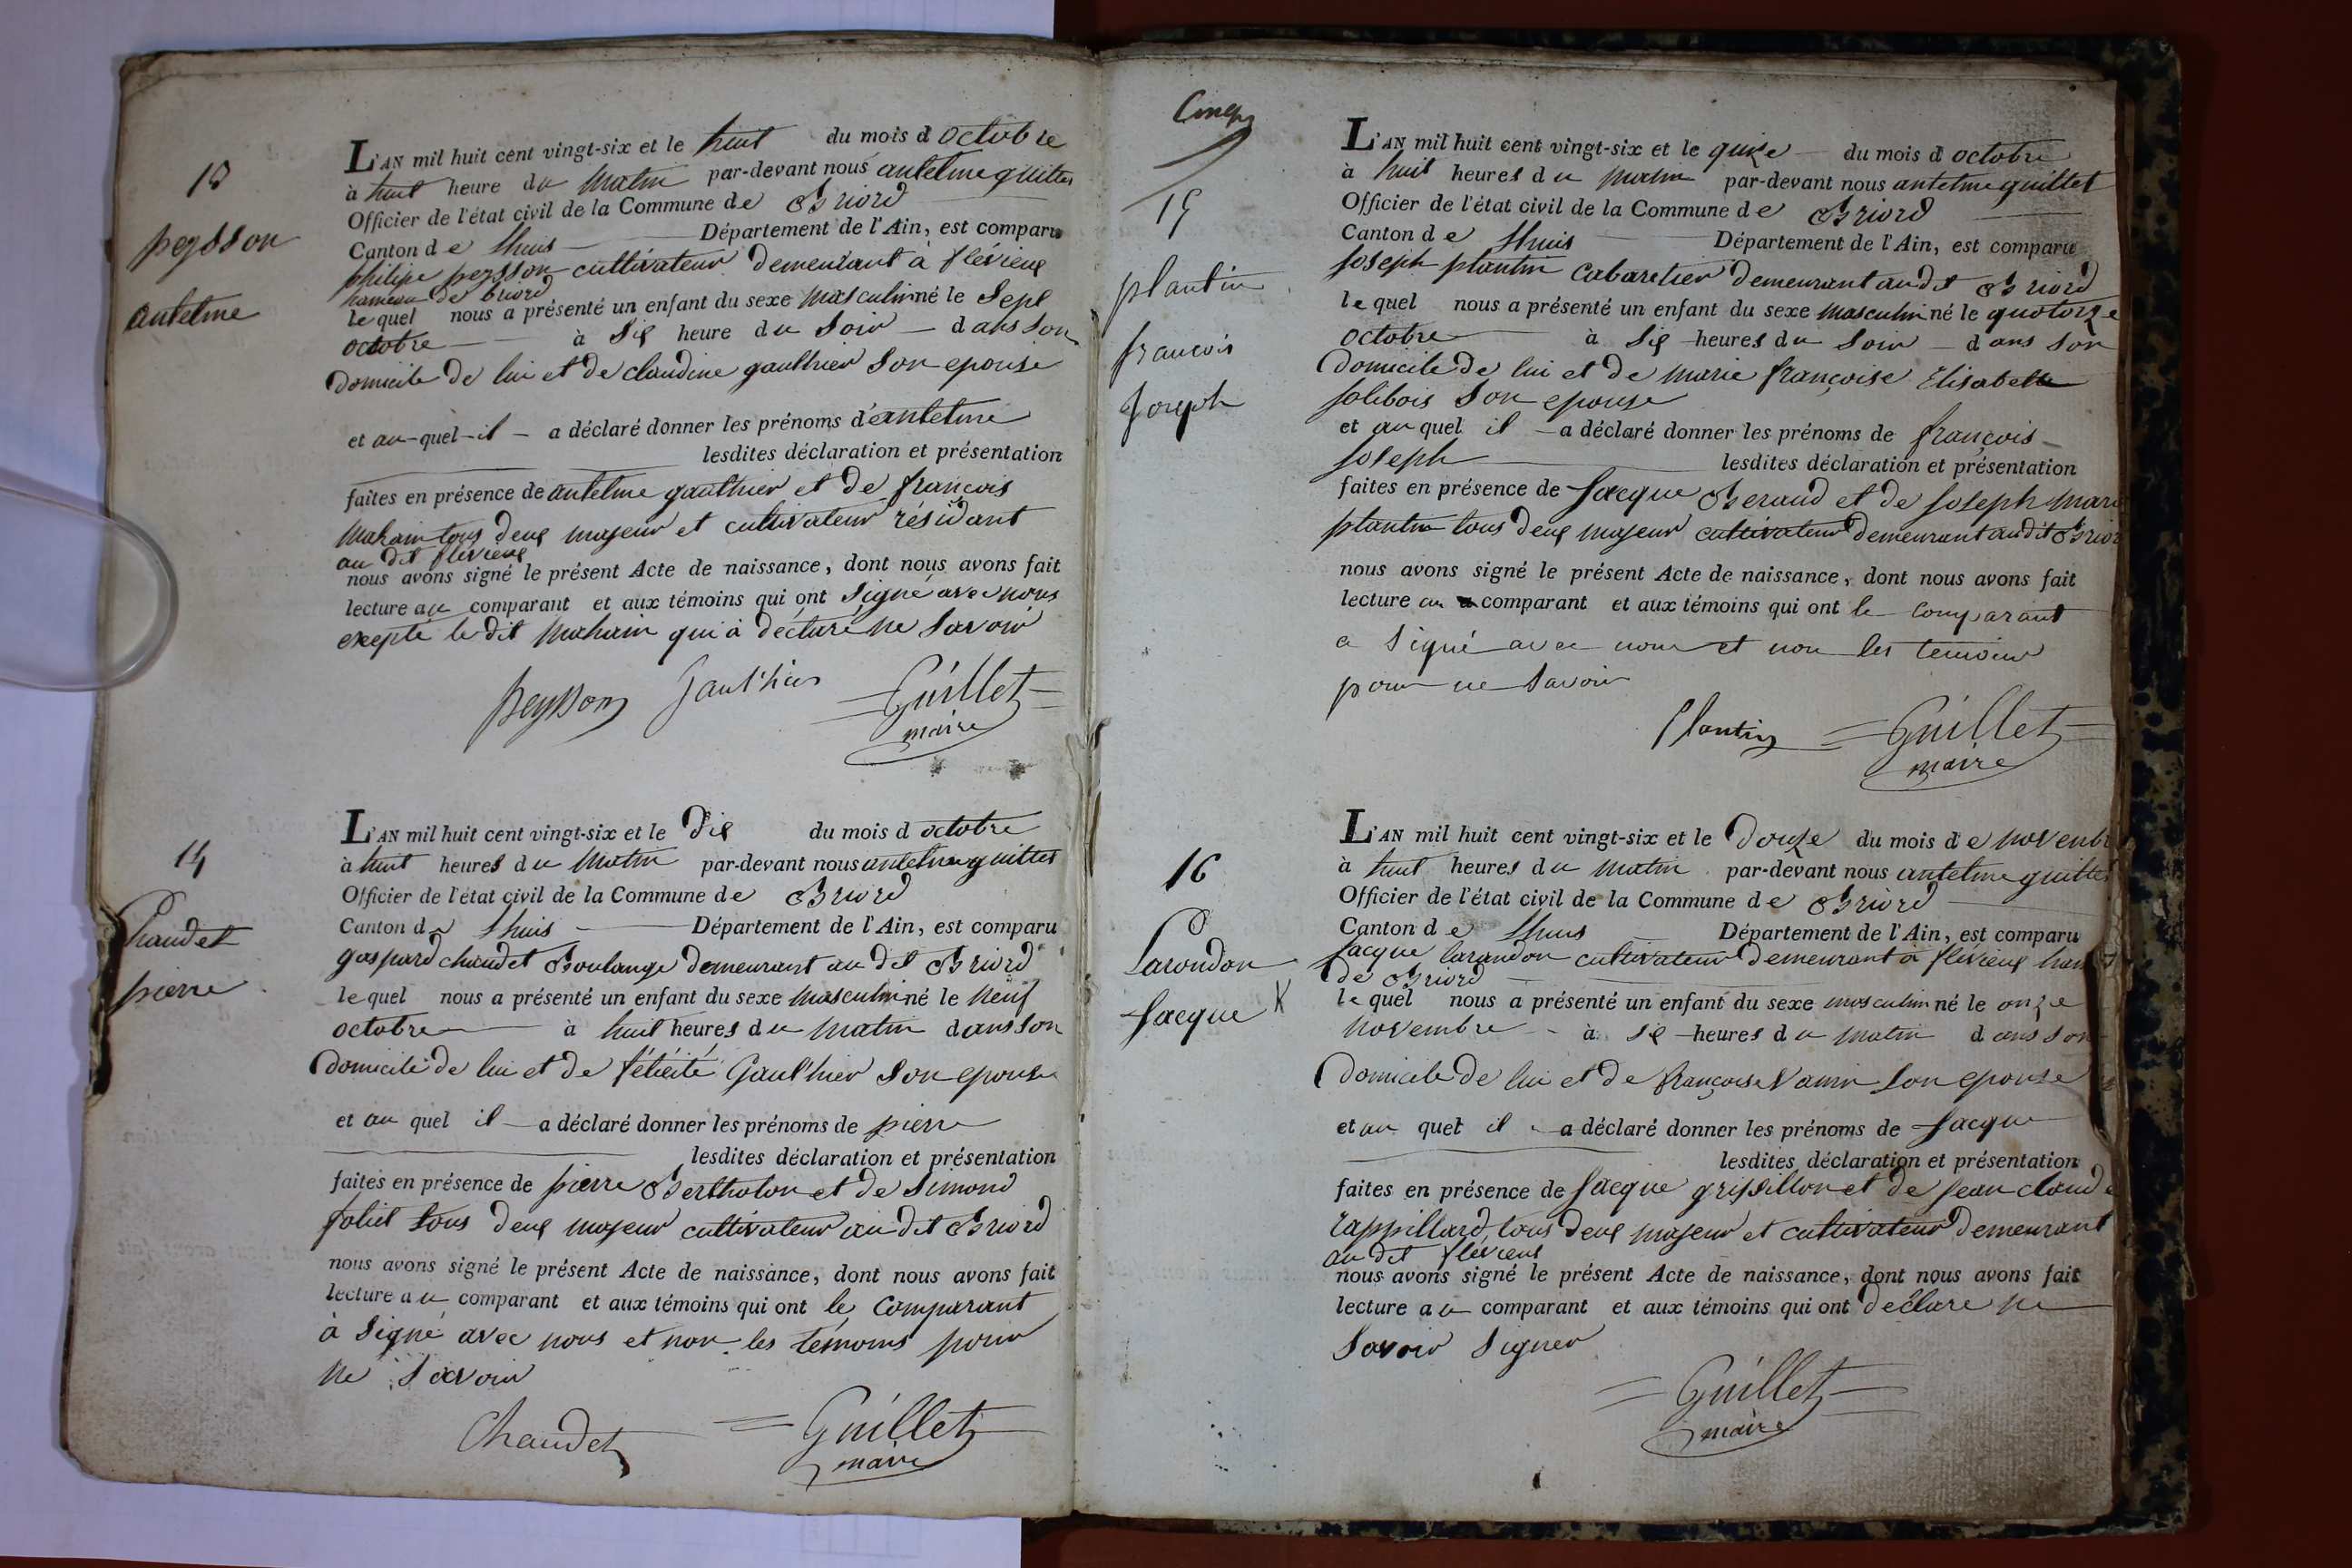 13
peysson
antelme
L'AN mil huit cent vingt-six et le huit du mois d octobre
à huit heure du matin par-devant nous antelme guillet
Officier de l'état civil de la Commune de Briord
Canton de Lhuis Département de l'Ain, est comparu
philipe peysson cultivateur demeurant à flévieux
hameau de briord
lequel nous a présenté un enfant du sexe masculin né le sept
octobre à six heure du soir dans son
domicile de lui et de claudine gaulthier son epouse
et au-quel-il a déclaré donner les prénoms d'éantelme
lesdites déclaration et présentation
faites en présence de antelme gaulthier et de françois
mahain tous deux majeur et cultivateur résidant
au dit flévieux
nous avons signé le présent Acte de naissance, dont nous avons fait
lecture au comparant et aux témoins qui ont signé avec nous
exepté le dit mahain qui à déclaré ne savoir
peysson Gaulthier Guillet
maire
14
Chaudet
pierre
L'AN mil huit cent vingt-six et le dix du mois d octobre
à huit heures du matin par-devant nous antelme guillet
Officier de l'état civil de la Commune de Briord
Canton de Lhuis Département de l'Ain, est comparu
gaspard chaudet Boulange demeurant au dit Briord
lequel nous a présenté un enfant du sexe masculin né le neuf
octobre à huit heures du matin dans son
domicile de lui et de félicité Gaulhier son epouse
et au quel il a déclaré donner les prénoms de pierre
lesdites déclaration et présentation
faites en présence de pierre Bertholon et de Simond
joliet tous deux majeur cultivateur au dit Briord
nous avons signé le présent Acte de naissance, dont nous avons fait
lecture au comparant et aux témoins qui ont le comparant
à signé avec nous et non les témoins pour
ne savoir
Chaudet Guillet
maire
Cinq
15
plantin
françois
joseph
L'AN mil huit cent vingt-six et le quize du mois d octobre
à huit heures du matin par-devant nous antelme guillet
Officier de l'état civil de la Commune de Briord
Canton de Lhuis Département de l'Ain, est comparu
joseph plantin cabaretier demeurant audit Briord
lequel nous a présenté un enfant du sexe masculin né le quotorze
octobre à six heures du soir dans son
domicile de lui et de marie françoise Elisabette
jolibois son epouse
et au quel il a déclaré donner les prénoms de françois
joseph lesdites déclaration et présentation
faites en présence de jacque Beraud et de joseph marie
plantin tous deux majeur cultivateur demeurant audit Briord
nous avons signé le présent Acte de naissance, dont nous avons fait
lecture au comparant et aux témoins qui ont le comparant
a signé avec nous et non les temoins
pour ne savoir
Plantin Guillet
maire
16
Larondon
jacque
L'AN mil huit cent vingt-six et le douze du mois de novembre
à huit heures du matin par-devant nous antelme guillet
Officier de l'état civil de la Commune de Briord
Canton de Lhuis Département de l'Ain, est comparu
jacque larandon cultivateur demeurant à flévieux ham
de Briord
lequel nous a présenté un enfant du sexe masculin né le onze
novembre à six heures du matin dans son
domicile de lui et de françoise son epouse
et au quel il a déclaré donner les prénoms de jacque
lesdites déclaration et présentation
faites en présence de jacque grissillon et de jean claude
rappillard tous deux majeur et cultivateur demeurant
au dit flévieux
nous avons signé le présent Acte de naissance, dont nous avons fait
lecture au comparant et aux témoins qui ont déclare ne
savoir signer
Guillet
maire